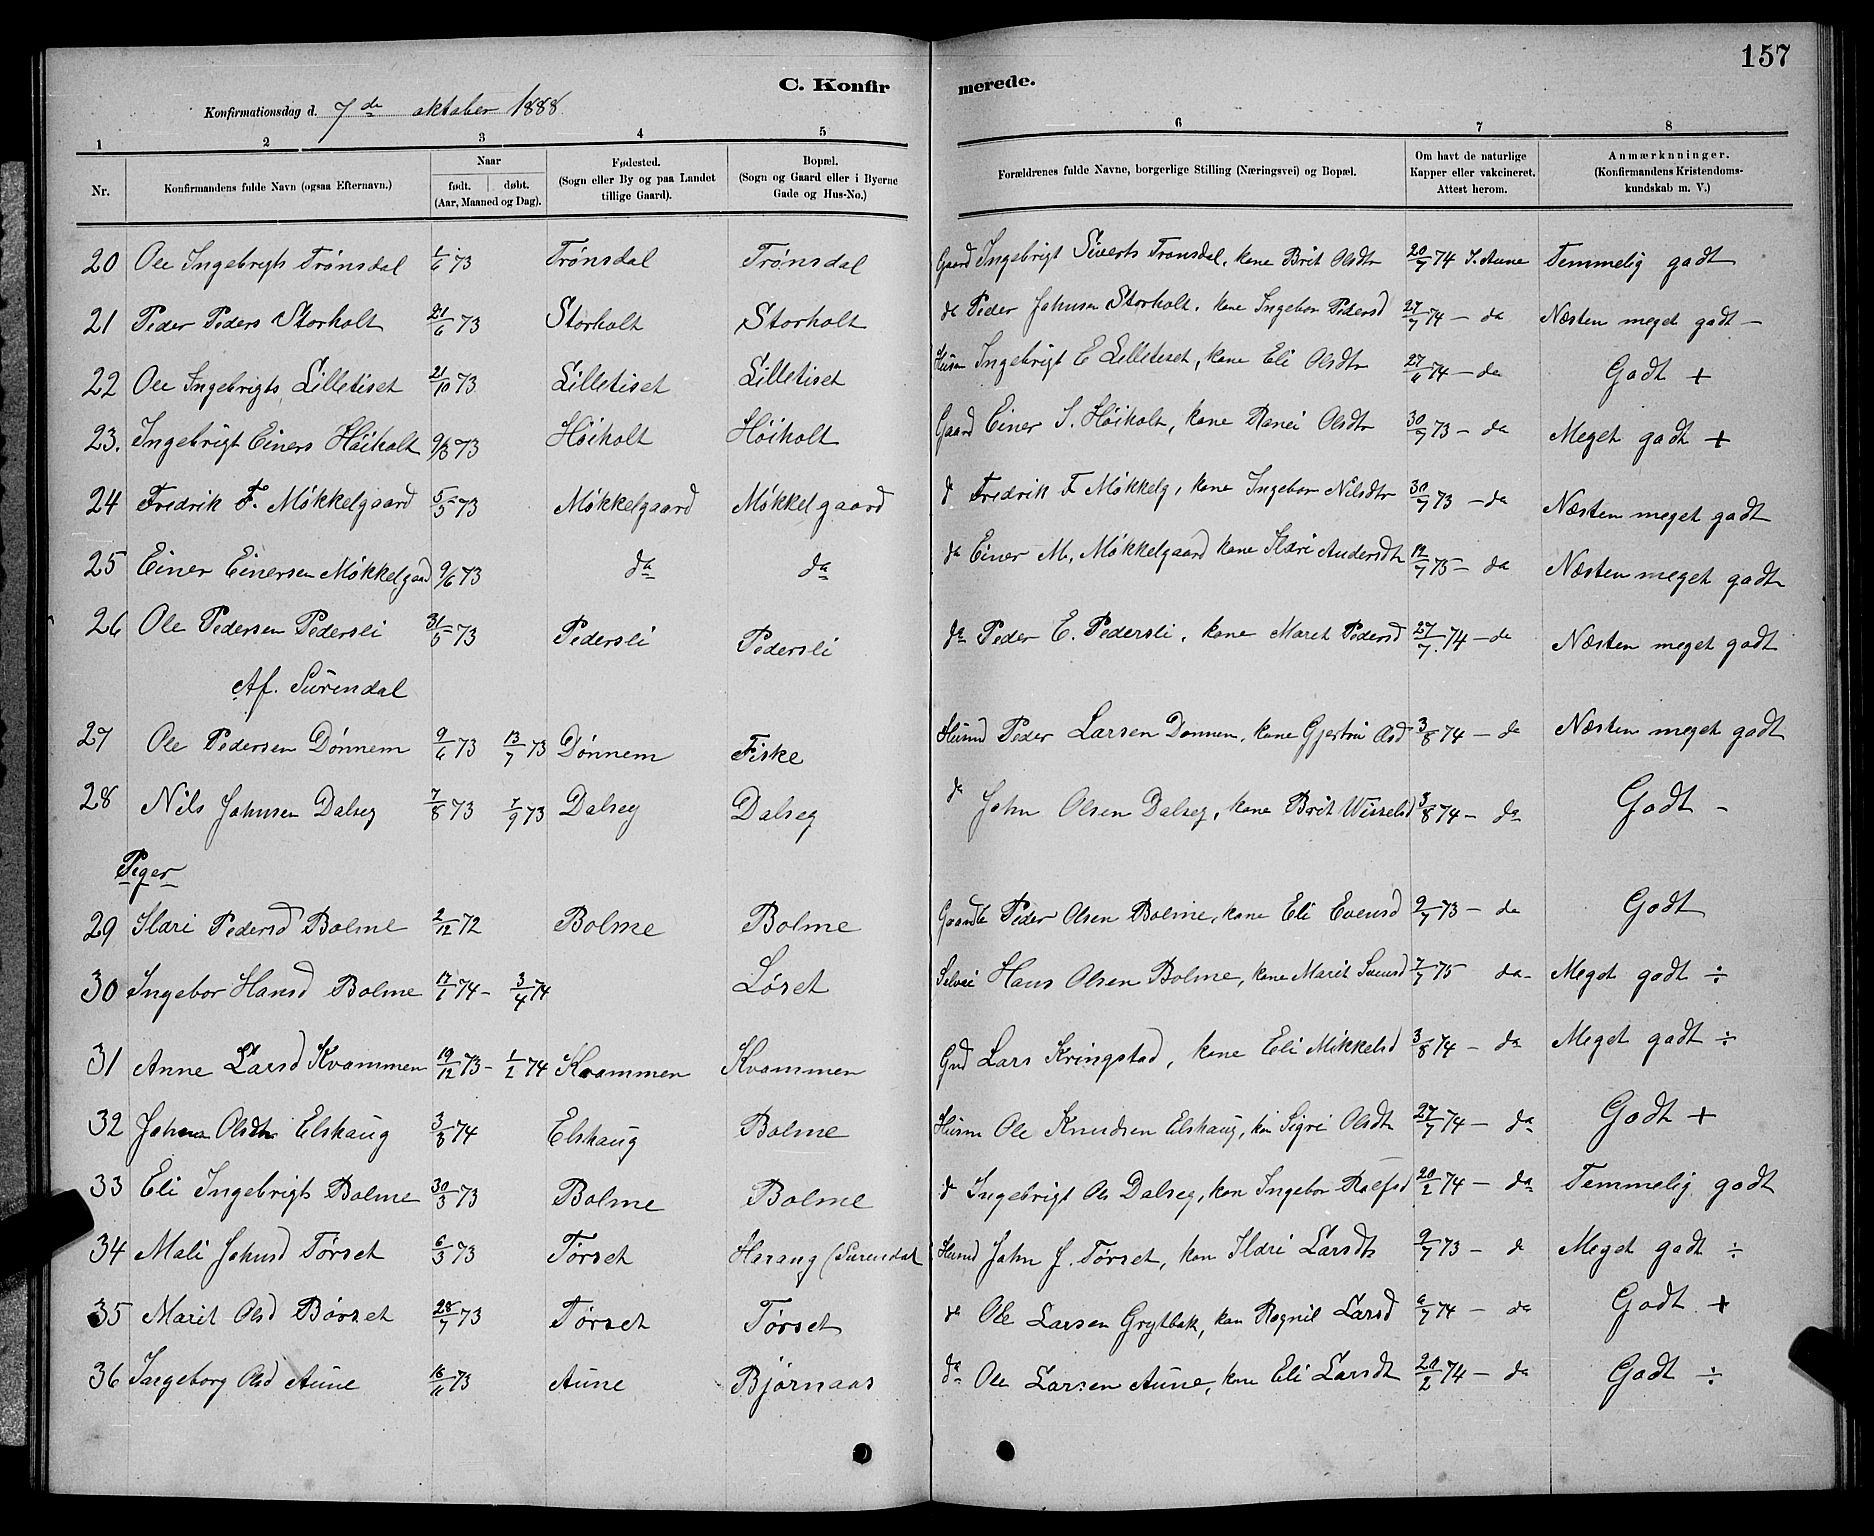 157
C. Konfirmerede.
Konfirmationsdag d. 7de oktober 1888.
1 2 3 4 5 6 7 8
Nr. | Konfirmandens fulde Navn (ogsaa Efternavn.) | Naar født. | døbt. (Aar, Maaned og Dag). | Fødested. (Sogn eller By og paa Landet tillige Gaard). | Bopæl. (Sogn og Gaard eller i Byerne Gade og Hus-No.) | Forældrenes fulde Navne, borgerlige Stilling (Næringsvei) og Bopæl. | Om havt de naturlige Kapper eller vakcineret. Attest herom. | Anmærknninger. (Konfirmandens Kristendomskundskab m. V.)
20 Ole Ingebrigts Trønsdal 1/6 73 Trønsdal Trønsdal Gaard Ingebrigt Siverts Tronsdal, kone Brit Olsdtr 20/7 74 I. Aune Temmelig godt
21 Peder Peders Storholt 21/6 73 Storholt Storholt do Peder Johnsen Storholt, kone Ingebor Pedersd 27/7 74 - do Næsten meget godt -
22 Ole Ingebrigts Lilletiset 21/10 73 Lilletiset Lilletiset Husm Ingebrigt E Lilletiset, kone Eli Olsdtr 27/6 74 - do Godt +
23. Ingebrigt Einers Höiholt 9/3 73 Höiholt Höiholt Gaard Einer S. Höiholt, kone Ranei Olsdtr 30/7 73 - do Meget godt +
24 Fredrik F. Møkkelgaard 5/5 73 Møkkelgaard Møkkelgaard d Fredrik F Møkkelg, kone Ingebor Nilsdtr 30/7 73 - do Næsten meget godt
25 Einer Einersen Møkkelgaard 9/6 73 do do do Einer M. Møkkelgaard kone Ildri Andersdt 12/7 75 - do Næsten meget godt
26 Ole Pedersen Pedersli 31/5 73 Pedersli Pedersli do Peder E. Pedersli, kone Maret Pedersd 27/7 74 - do Næsten meget godt
Af. Surendal
27 Ole Pedersen Dønnem 9/6 73 13/7 73 Dønnem Fiske Husmd Peder Larsen Donnem, kone Gjertru Olsd 3/8 74 - do Næsten meget godt
28 Nils Johnsen Dalseg 7/8 73 7/9 73 Dalseg Dalseg do John Olsen Dalseg, kone Brit 3/8 74 - do Godt -
Piger
29 Ildri Pedersd Bolme 2/12 72 Bolme Bolme Peder Olsen Bolme, kone Eli Evensd 9/7 73 - do Godt
30 Ingebor Hansd Bolme 17/1 74 - 3/4 74 Løset Selvei Hans Olsen Bolme, kone Marit 7/7 75 do - Meget godt ÷
31 Anne Larsd Kvammen 19/12 73 - 1/2 74 Kvammen Kvammen Gmd Lars Kringstad, kone Eli Mikkelsd 3/8 74 - do Meget godt ÷
32 Olsdtr Elshaug 3/3 74 Elshaug Bolme Husm Ole Knudsen Elshaug, kon Sigri Olsdt 27/7 74 - do Godt +
33 Eli Ingebrigts Bolme 30/3 73 Bolme Bolme d Ingebrigt Ols Dalseg, kon Ingebor 20/2 74 - do Temmelig godt
34 Mali Johnsd Tørset 6/3 73 Tørset Harang (Surendal Husmd John J. Tørset, kon Ildri Larsdtr 9/7 73 - d Meget godt ÷
35 Marit Olsd Børset 28/7 73 Tørset Tørset do Ole Larsen Grytbak, kon Ragnil Larsd 6/7 74 - do Godt +
36 Ingeborg Olsd Aune 16/11 73 Aune Bjørnaas do Ole Larsen Aune, kone Eli Larsdt 20/2 74 - do Godt ÷